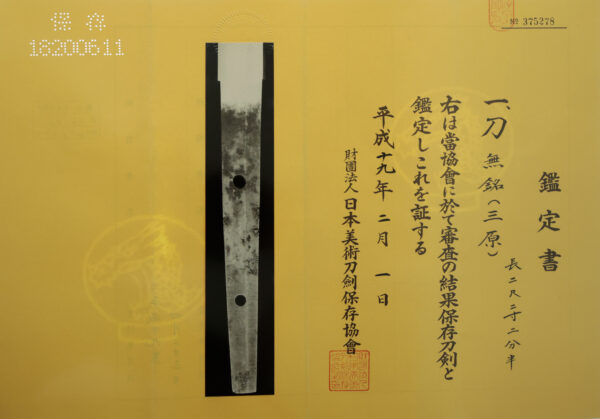 保存
18200611
№ 375278
鑑定書
長二尺二寸二分半
一、刀 無銘(三原)
右は當協會に於て審査の結果保存刀剣と
鑑定しこれを証する
平成十九年二月一日
財團法人日本美術刀劍保存協會